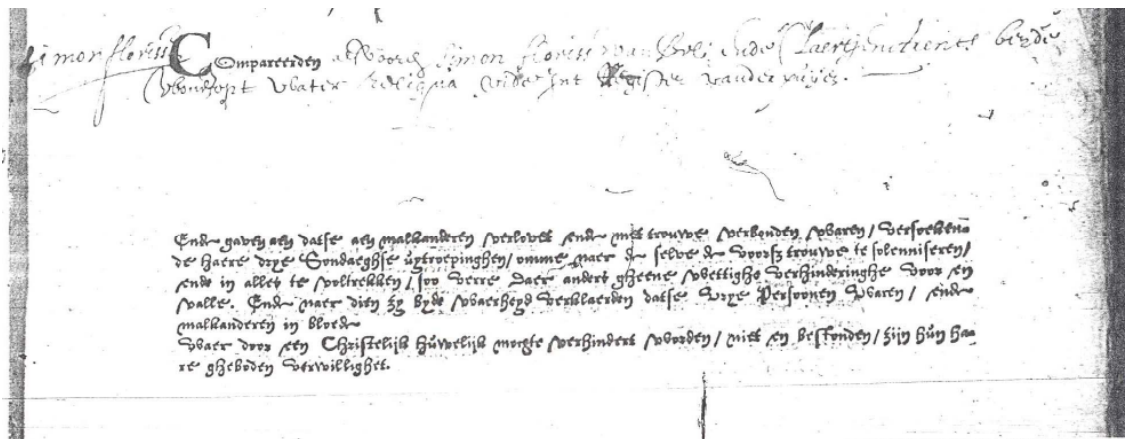 Simon floriss Compareerden als vooren Simon floriss van Delf ende Claertjen beyde
woonen opt water Reliqua vide Int Register vander puije
Ende gaven aen datse aen malkanderen verlovet ende met trouwe verbonden waren / versoekken-
de haere drye Sondaeghse uytroepinghen / omme naer de selve de voorsz trouwe te solenniseren /
ende in alles te voltrekken / soo verre daer anders gheene wettighe verhinderinghe voor en
valle. Ende naer dien zy byde waerheyd verklaerden datse vrye Persoonen waren / ende
malkanderen in bloede
waer door een Christelijk huwelijk mogte verhindert worden / niet en bestonden / zijn hun haa
re gheboden verwillighet.